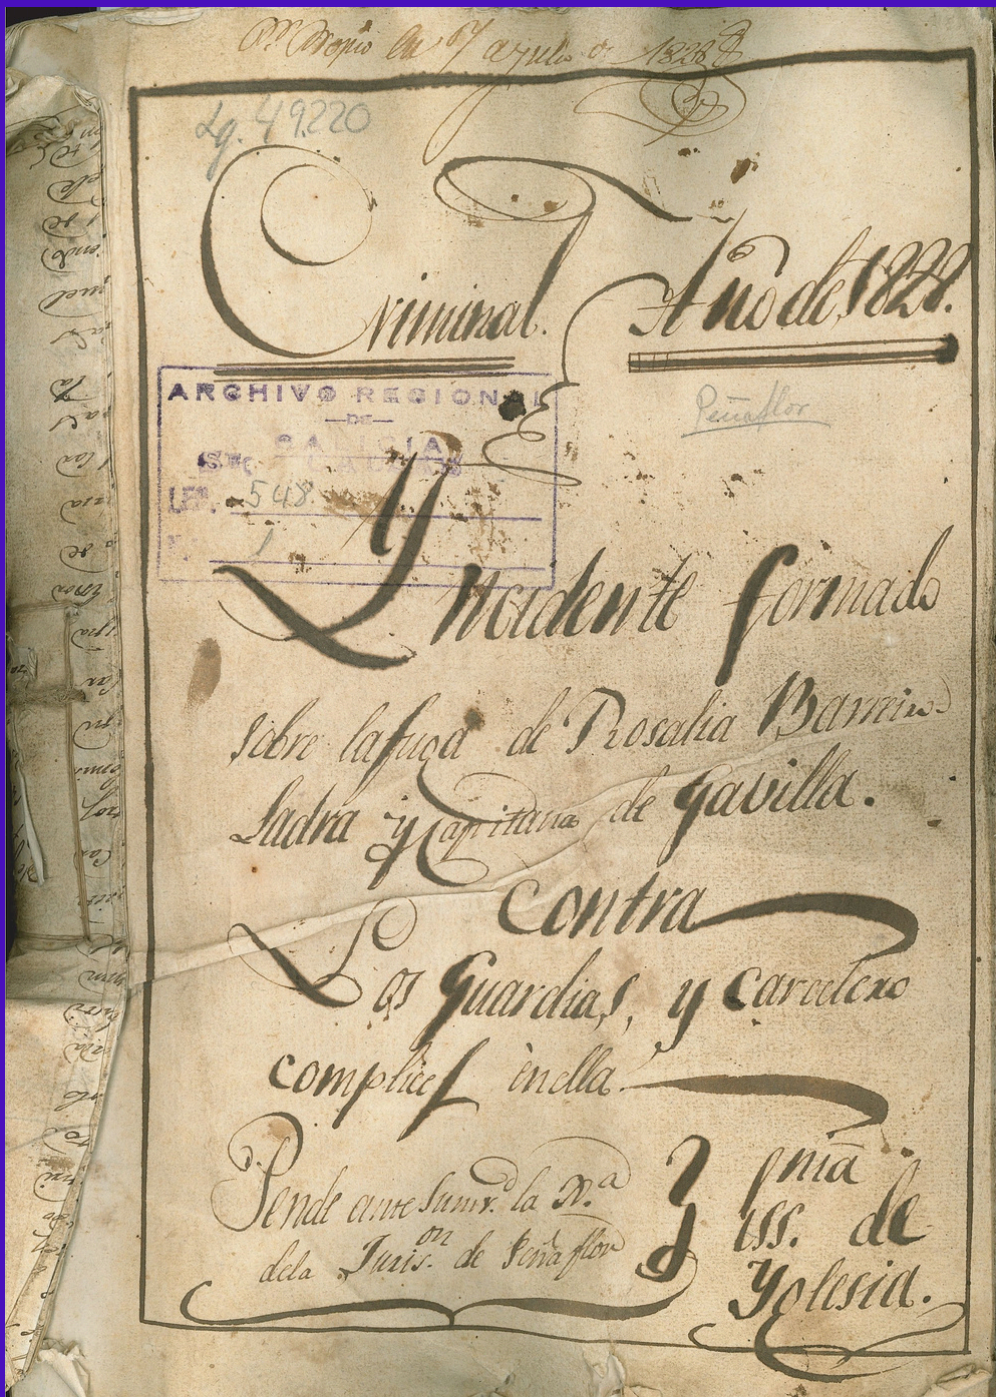 Propio en 7 a julio de 1828
Lg. 49220
Criminal. Año de 1828.
Peñaflor
ARCHIVO REGIONAL
—DE—
GALICIA
LEG. 548
1
Yncidente formado
sobre la fuga de Rosalia Barreiro
Ladra y Capitana de gavilla.
Contra
Los Guardias, y carcelero
complices ènella.
Pende ante Sumrd. la Rª
dela Jurison. de Peñaflor
Ess. de
Yglesia.